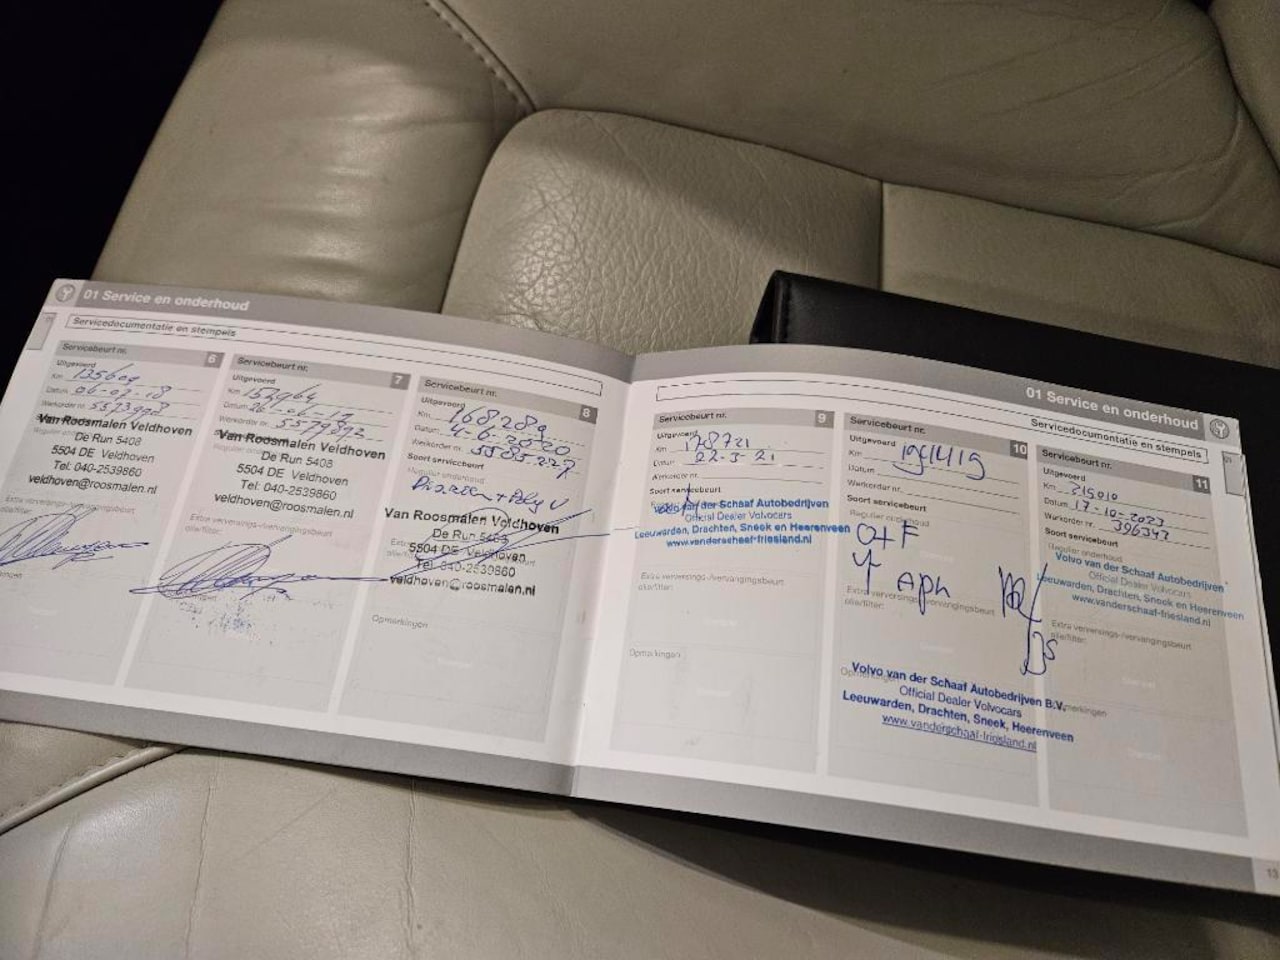 01 Service en onderhoud
Servicedocumentatie en stempels
Servicebeurt nr. 6
Uitgevoerd
Km 135609
Datum 06-02-18
Werkorder nr. 5573993
Van Roosmalen Veldhoven
De Run 5408
5504 DE Veldhoven
Tel: 040-2539860
veldhoven@roosmalen.nl
Servicebeurt nr. 7
Uitgevoerd
Km 152964
Datum 26-06-19
Werkorder nr. 5579892
Van Roosmalen Veldhoven
De Run 5408
5504 DE Veldhoven
Tel: 040-2539860
veldhoven@roosmalen.nl
Extra verversings-/vervangingsbeurt
olie/filter:
Servicebeurt nr. 8
Uitgevoerd
Km 168289
Datum 4-6-2020
Werkorder nr. 5585227
Soort servicebeurt
Regulier onderhoud
Van Roosmalen Veldhoven
De Run 5408
5504 DE Veldhoven
Tel: 040-2539860
veldhoven@roosmalen.nl
Opmerkingen
01 Service en onderhoud
Servicedocumentatie en stempels
Servicebeurt nr. 9
Uitgevoerd
Km 178721
Datum 22-3-21
Werkorder nr.
Soort servicebeurt
Volvo van der Schaaf Autobedrijven
Official Dealer Volvocars
Leeuwarden, Drachten, Sneek en Heerenveen
www.vanderschaaf-friesland.nl
Extra verversings-/vervangingsbeurt
olie/filter:
Opmerkingen
Servicebeurt nr. 10
Uitgevoerd
Km 191419
Datum
Werkorder nr.
Soort servicebeurt
Regulier onderhoud
O+F
+ APK
Extra verversings-/vervangingsbeurt
olie/filter:
Volvo van der Schaaf Autobedrijven B.V.
Official Dealer Volvocars
Leeuwarden, Drachten, Sneek, Heerenveen
www.vanderschaaf-friesland.nl
Servicebeurt nr. 11
Uitgevoerd
Km 215010
Datum 17-10-2023
Werkorder nr. 396343
Soort servicebeurt
Regulier onderhoud
Volvo van der Schaaf Autobedrijven
Official Dealer Volvocars
Leeuwarden, Drachten, Sneek en Heerenveen
www.vanderschaaf-friesland.nl
Extra verversings-/vervangingsbeurt
olie/filter:
Opmerkingen
13